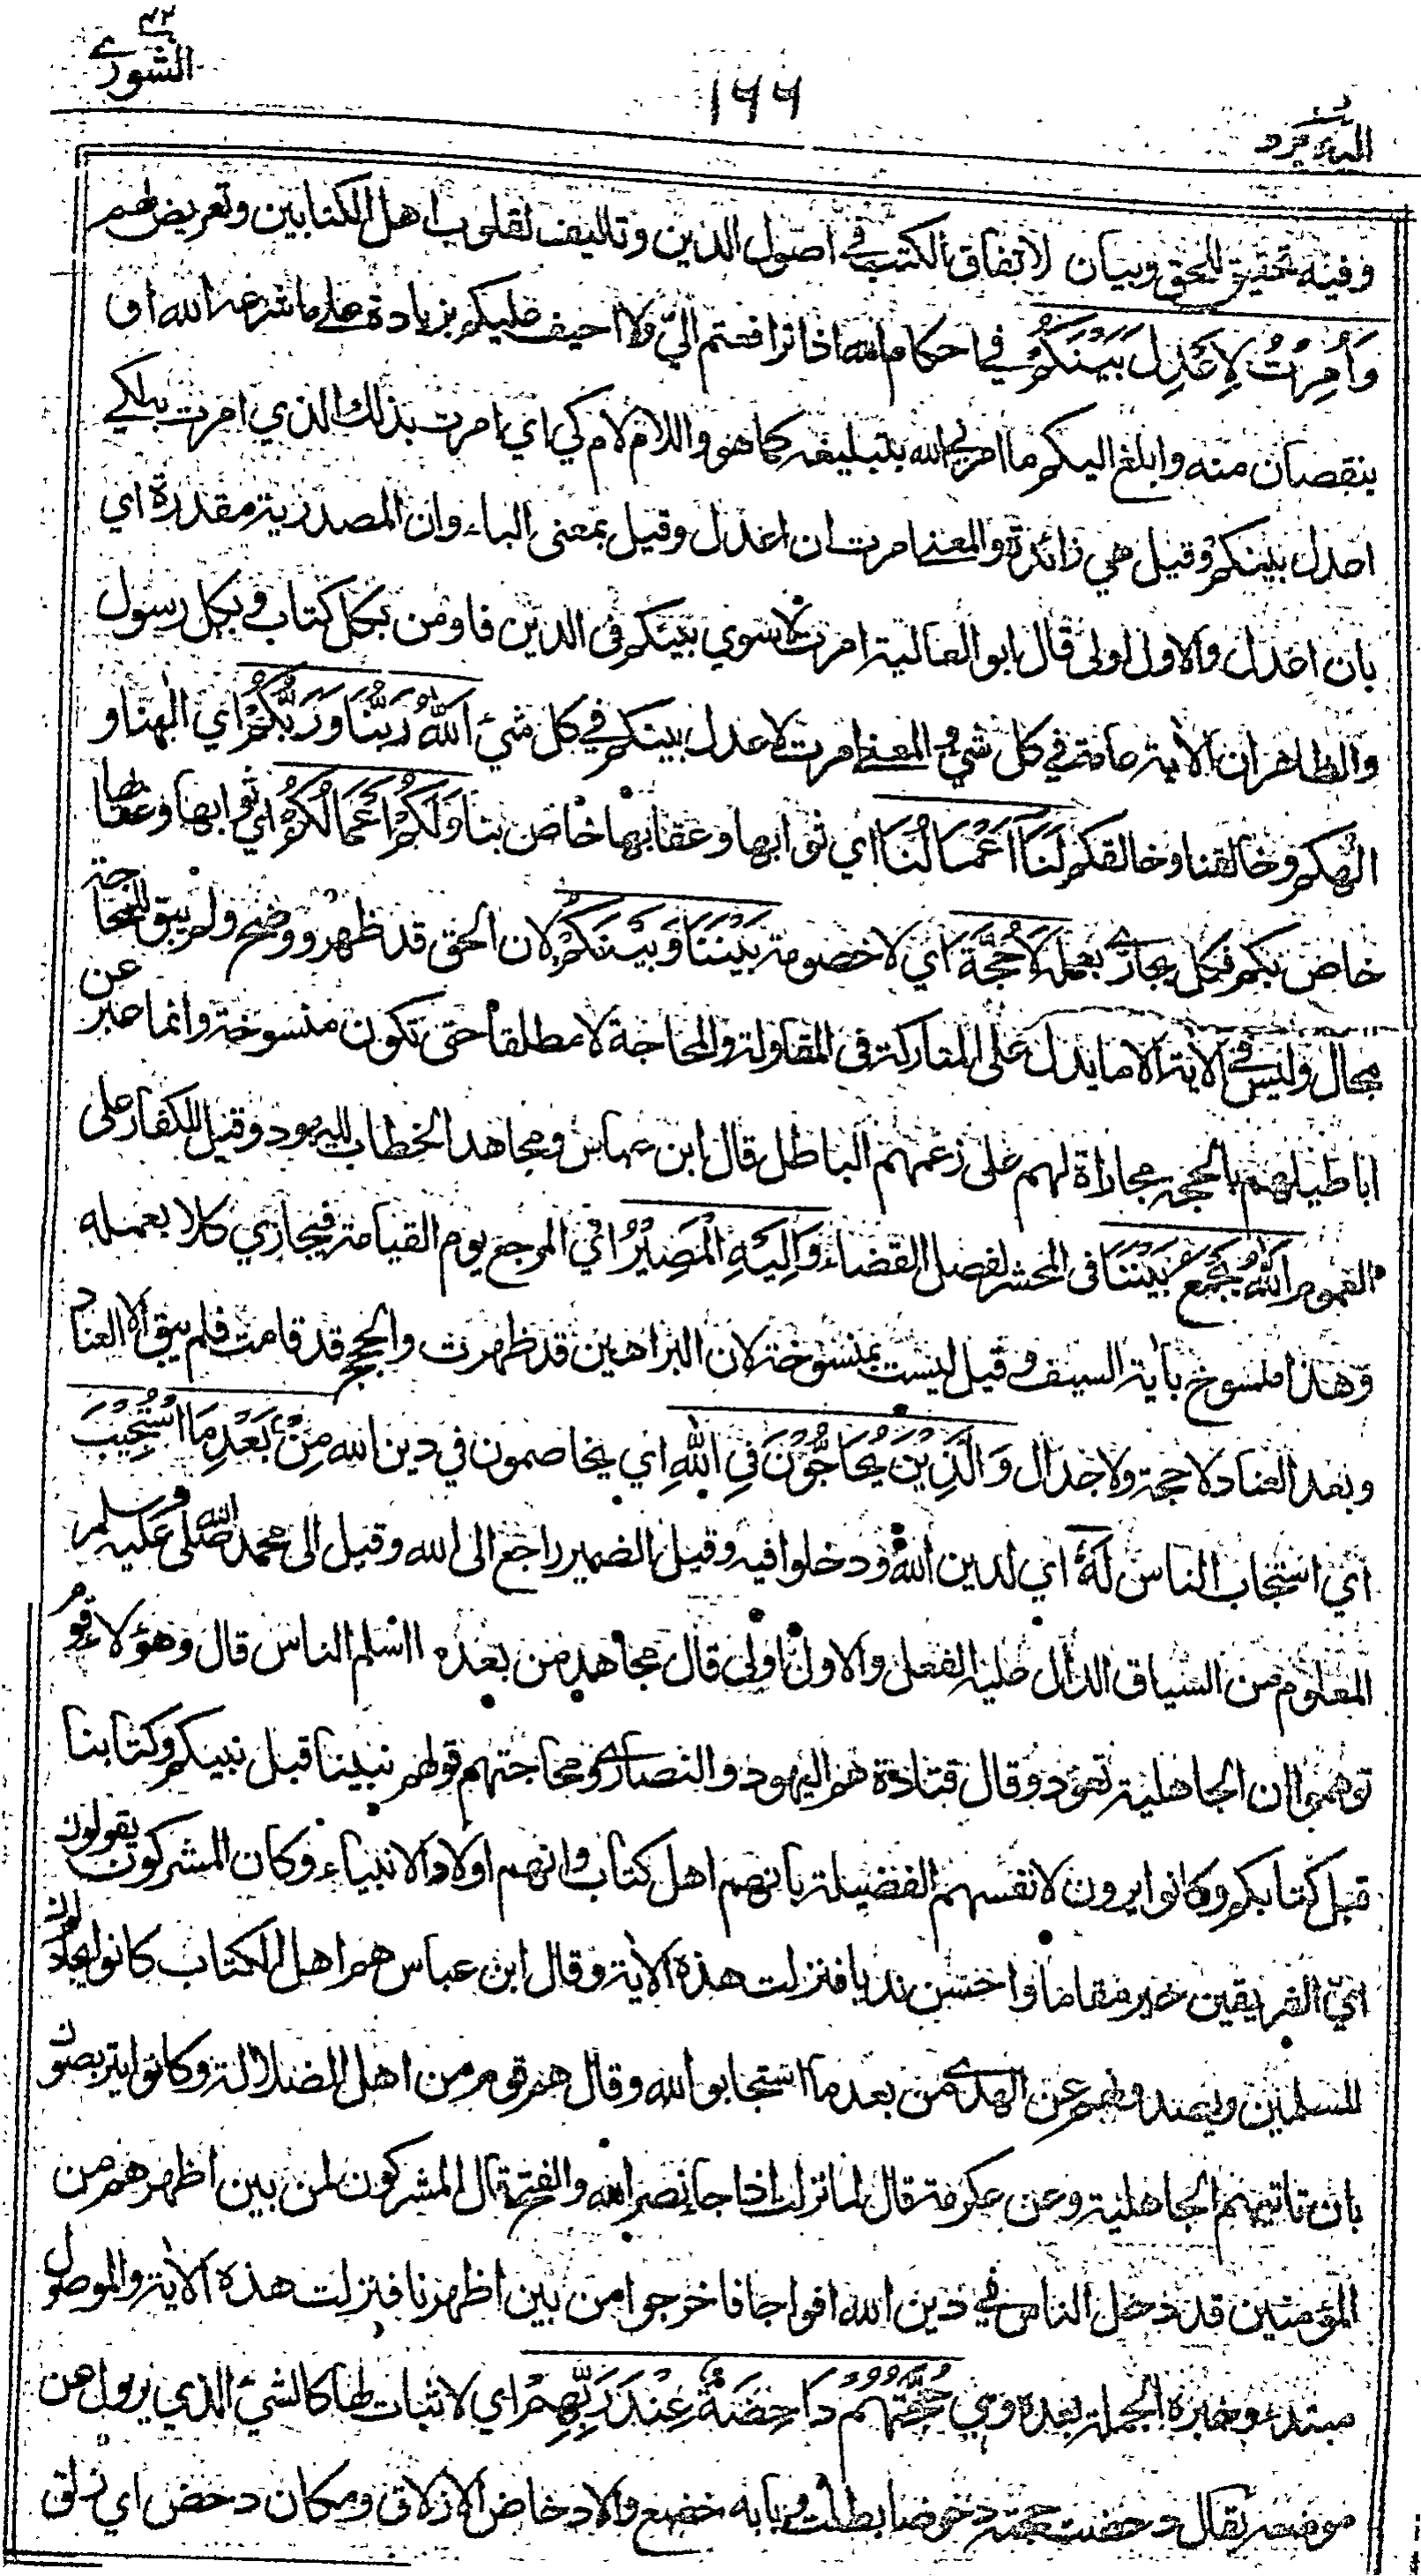 ٤٢
الشورى
١٦٦
اليه يرد
وفيه تحقيق للحق وبيان لاتفاق الكتب في اصول الدين وتاليف لقلوب اهل الكتابين وتعريض لهم
وَأُمِرْتُ لِأَعْدِلَ بَيْنَكُمُ في احكام الله اذا ترافعتم اليّ ولا احيف عليكم بزيادة على ما شرعه الله او
بنقصان منه وابلغ اليكم ما امرني الله بتبليغه كما هو واللام لام كي اي امرت بذلك الذي امرت به لكي
اعدل بينكم وقيل هي زائدة والمعنى امرت ان اعدل وقيل بمعنى الباء وان المصدرية مقدرة اي
بان اعدل والاول اولى قال ابو العالية امرت لاسوي بينكم في الدين فاومن بكل كتاب وبكل رسول
والظاهر ان الآية عامة في كل شيء والمعنى امرت لاعدل بينكم في كل شيء اَللّٰهُ رَبُّنَا وَرَبُّكُمْ اي الهنا و
الهكم وخالقنا وخالقكم لَنَآ اَعْمَالُنَا اي ثوابها وعقابها خاص بنا وَلَكُمْ اَعْمَالُكُمْ اي ثوابها وعقابها
خاص بكم فكل يجازى بعمله لَا حُجَّةَ اي لا خصومة بَيْنَنَا وَبَيْنَكُمُ لان الحق قد ظهر ووضح ولم يبق للمحاجة
مجال وليس في الآية الا ما يدل على المتاركة في المقاولة والمحاجة لا مطلقا حتى تكون منسوخة وانما عبر عن
اباطيلهم بالحجة مجاراة لهم على زعمهم الباطل قال ابن عباس ومجاهد الخطاب لليهود وقيل للكفار على
العموم اَللّٰهُ يَجْمَعُ بَيْنَنَا في المحشر لفصل القضاء وَاِلَيْهِ الْمَصِيْرُ اي المرجع يوم القيامة فيجازي كلا بعمله
وهذا منسوخ باٰية السيف وقيل ليست بمنسوخة لان البراهين قد ظهرت والحجج قد قامت فلم يبق الا العناد
وبعد العناد لا حجة ولا جدال وَالَّذِيْنَ يُحَاجُّوْنَ فِي اللّٰهِ اي يخاصمون في دين الله مِنْۢ بَعْدِ مَا اسْتُجِيْبَ
اي استجاب الناس لَهٗ اي لدين الله ودخلوا فيه وقيل الضمير راجع الى الله وقيل الى محمد صلى الله عليه وسلم
المعلوم من السياق الدال عليه الفعل والاول اولى قال مجاهد من بعده اسلم الناس قال وهؤلاء قوم
توهموا ان الجاهلية تعود وقال قتادة هم اليهود والنصارى ومحاجتهم قولهم نبينا قبل نبيكم وكتابنا
قبل كتابكم وكانوا يرون لانفسهم الفضيلة بانهم اهل كتاب وانهم اولاد الانبياء وكان المشركون يقولون
اي الفريقين خير مقاما واحسن نديا فنزلت هذه الآية وقال ابن عباس هم اهل الكتاب كانوا يجادلون
المسلمين ويصدونهم عن الهدى من بعد ما استجابوا لله وقال هم قوم من اهل الضلالة وكانوا يتربصون
بان تاتيهم الجاهلية وعن عكرمة قال لما نزلت اذا جاء نصر الله والفتح قال المشركون لمن بين اظهرهم من
المؤمنين قد دخل الناس في دين الله افواجا فاخرجوا من بين اظهرنا فنزلت هذه الآية والموصول
مبتدء وخبره الجملة بعده وهي حُجَّتُهُمْ دَاحِضَةٌ عِنْدَ رَبِّهِمْ اي لا ثبات لها كالشيء الذي يزول عن
موضعه يقال دحضت حجته دحوضا بطلت وبابه خضع والادحاض الازلاق ومكان دحض اي زلق